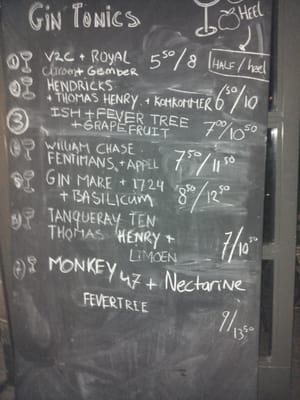 GIN TONICS
HEEL
HALF / heel
① V2C + ROYAL 5⁵⁰/8
citroen + Gember
② HENDRICKS
+ THOMAS HENRY + KOMKOMMER 6⁵⁰/10
③ ISH + FEVER TREE
+ GRAPEFRUIT 7⁰⁰/10⁵⁰
WILLIAM CHASE
FENTIMANS + APPEL 7⁵⁰/11⁵⁰
GIN MARE + 1724
+ BASILICUM 8⁵⁰/12⁵⁰
TANQUERAY TEN
THOMAS HENRY + 7/10⁵⁰
LIMOEN
MONKEY 47 + Nectarine
FEVERTREE
9/13⁵⁰